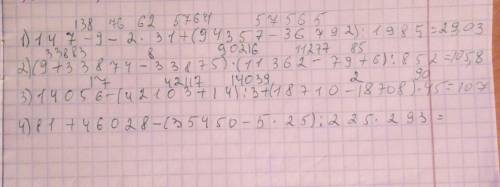 138 76 62 5764 57565
1) 147-9-2·31+(94357-36792):1985=2903
33883 8 90216 11277 85
2)(9+33874-33875)·(11362-79+6):852=1058
17 42117 14039 2 90
3) 14056-(42103+14):3+(18710-18708)·45=107
4) 81+46028-(35450-5·25):225·293=